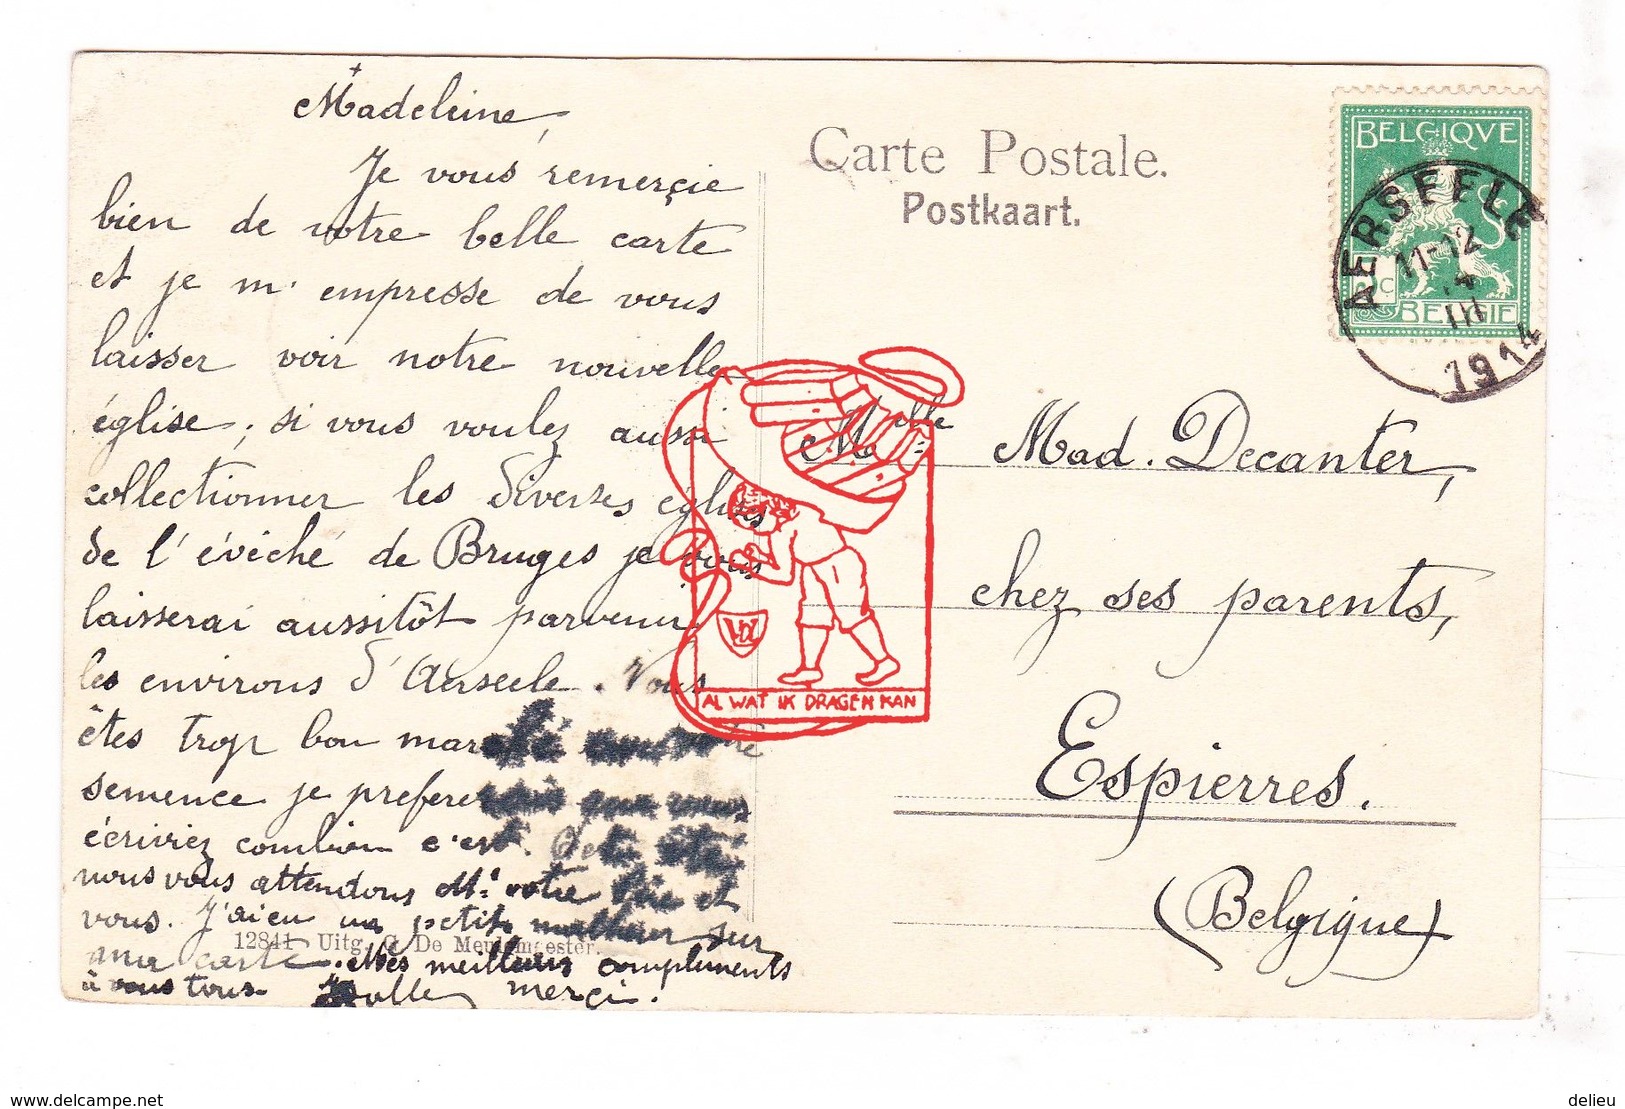 Madeleine,
Je vous remerçie
bien de votre belle carte
et je m'empresse de vous
laisser voir notre nouvelle
église; si vous voulez aussi
collectionner les diverses églises
de l'évêché de Bruges je vous
laisserai aussitôt parvenir
les environs d'Aerseele. Vous
êtes trop bon marché
semence je préfererais que vous
écriviez combien c'est. Cet été
nous vous attendons Mr votre Père et
vous. J'ai eu un petit malheur sur
ma carte. Mes meilleurs compliments
à vous tous. merçi.
12841 Uitg. G. De Meulemeester.
Carte Postale.
Postkaart.
BELGIQVE
BELGIE
AERSEELE
11-12
III
1914
Melle Mad. Decanter,
chez ses parents,
Espierres.
(Belgique)
AL WAT IK DRAGEN KAN
delcampe.net
delieu